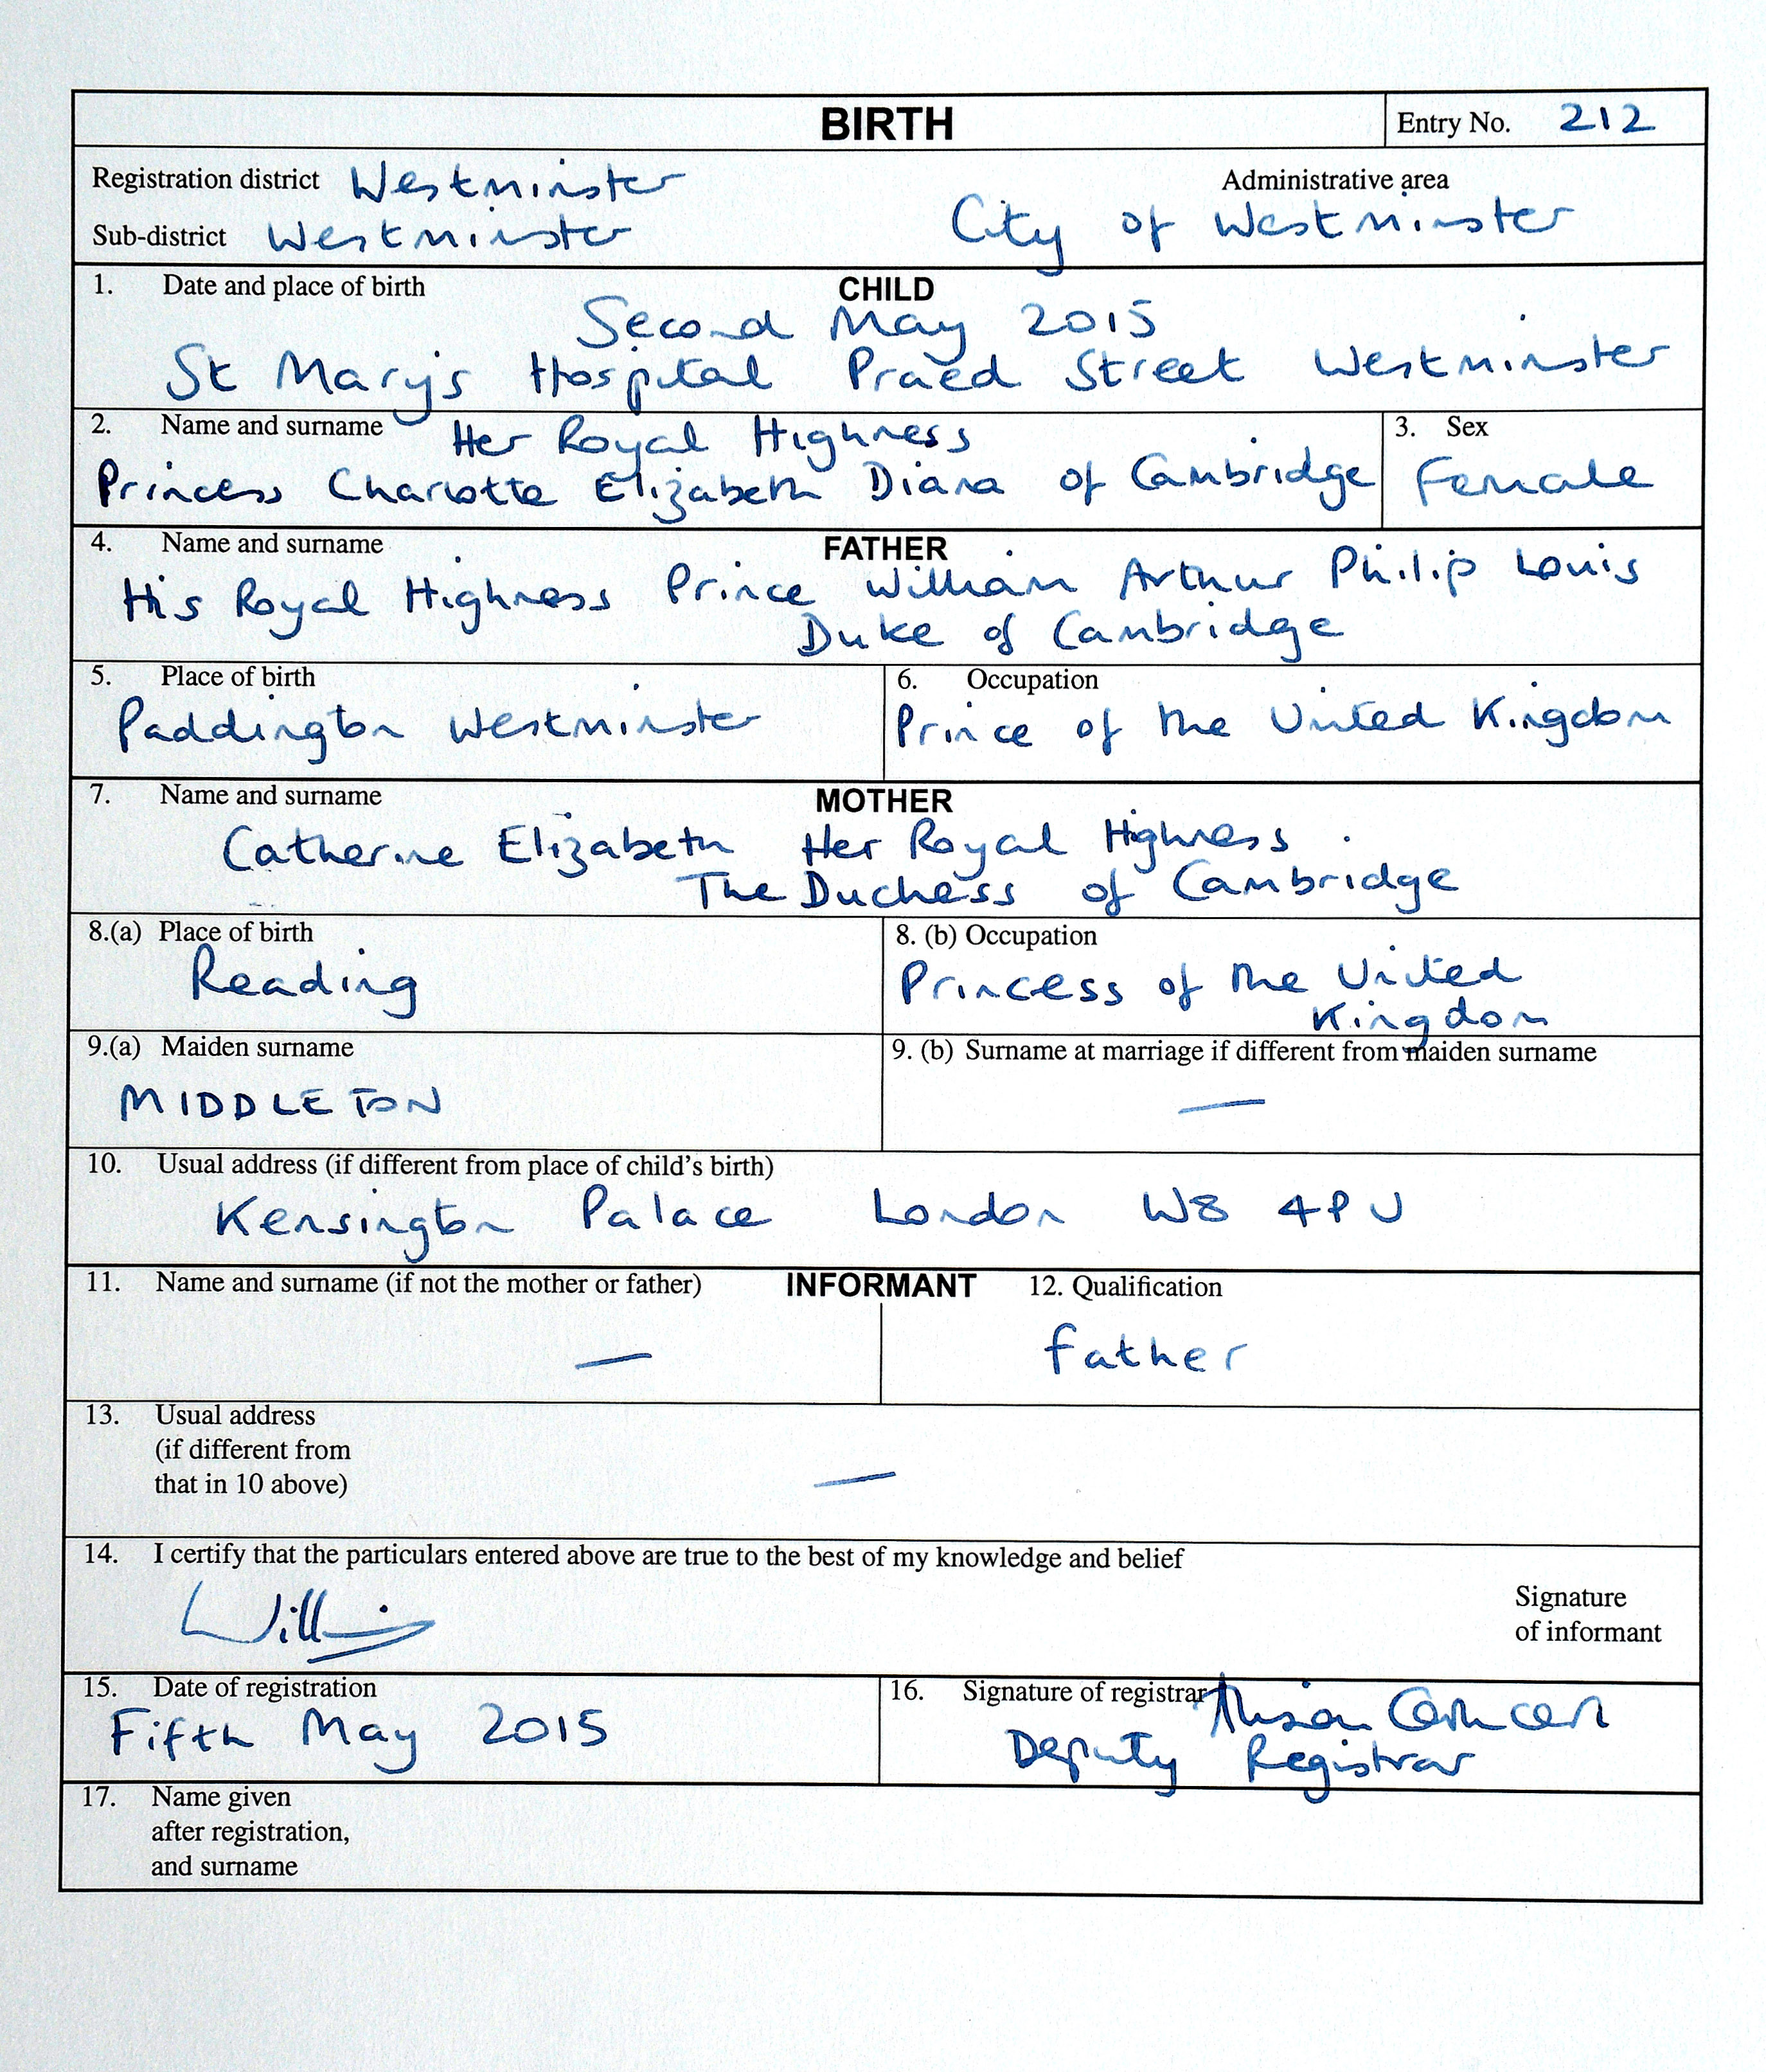 BIRTH
Entry No. 212
Registration district Westminster
Administrative area
Sub-district Westminster
City of Westminster
1. Date and place of birth
CHILD
Second May 2015
St Mary's Hospital Praed Street Westminster
2. Name and surname
Her Royal Highness
Princess Charlotte Elizabeth Diana of Cambridge
3. Sex
Female
4. Name and surname
FATHER
His Royal Highness Prince William Arthur Philip Louis
Duke of Cambridge
5. Place of birth
Paddington Westminster
6. Occupation
Prince of the United Kingdom
7. Name and surname
MOTHER
Catherine Elizabeth Her Royal Highness
The Duchess of Cambridge
8.(a) Place of birth
Reading
8. (b) Occupation
Princess of the United
Kingdom
9.(a) Maiden surname
MIDDLETON
9. (b) Surname at marriage if different from maiden surname
—
10. Usual address (if different from place of child's birth)
Kensington Palace London W8 4PU
11. Name and surname (if not the mother or father)
INFORMANT
—
12. Qualification
Father
13. Usual address
(if different from
that in 10 above)
—
14. I certify that the particulars entered above are true to the best of my knowledge and belief
William
Signature
of informant
15. Date of registration
Fifth May 2015
16. Signature of registrar
Alison
Deputy Registrar
17. Name given
after registration,
and surname